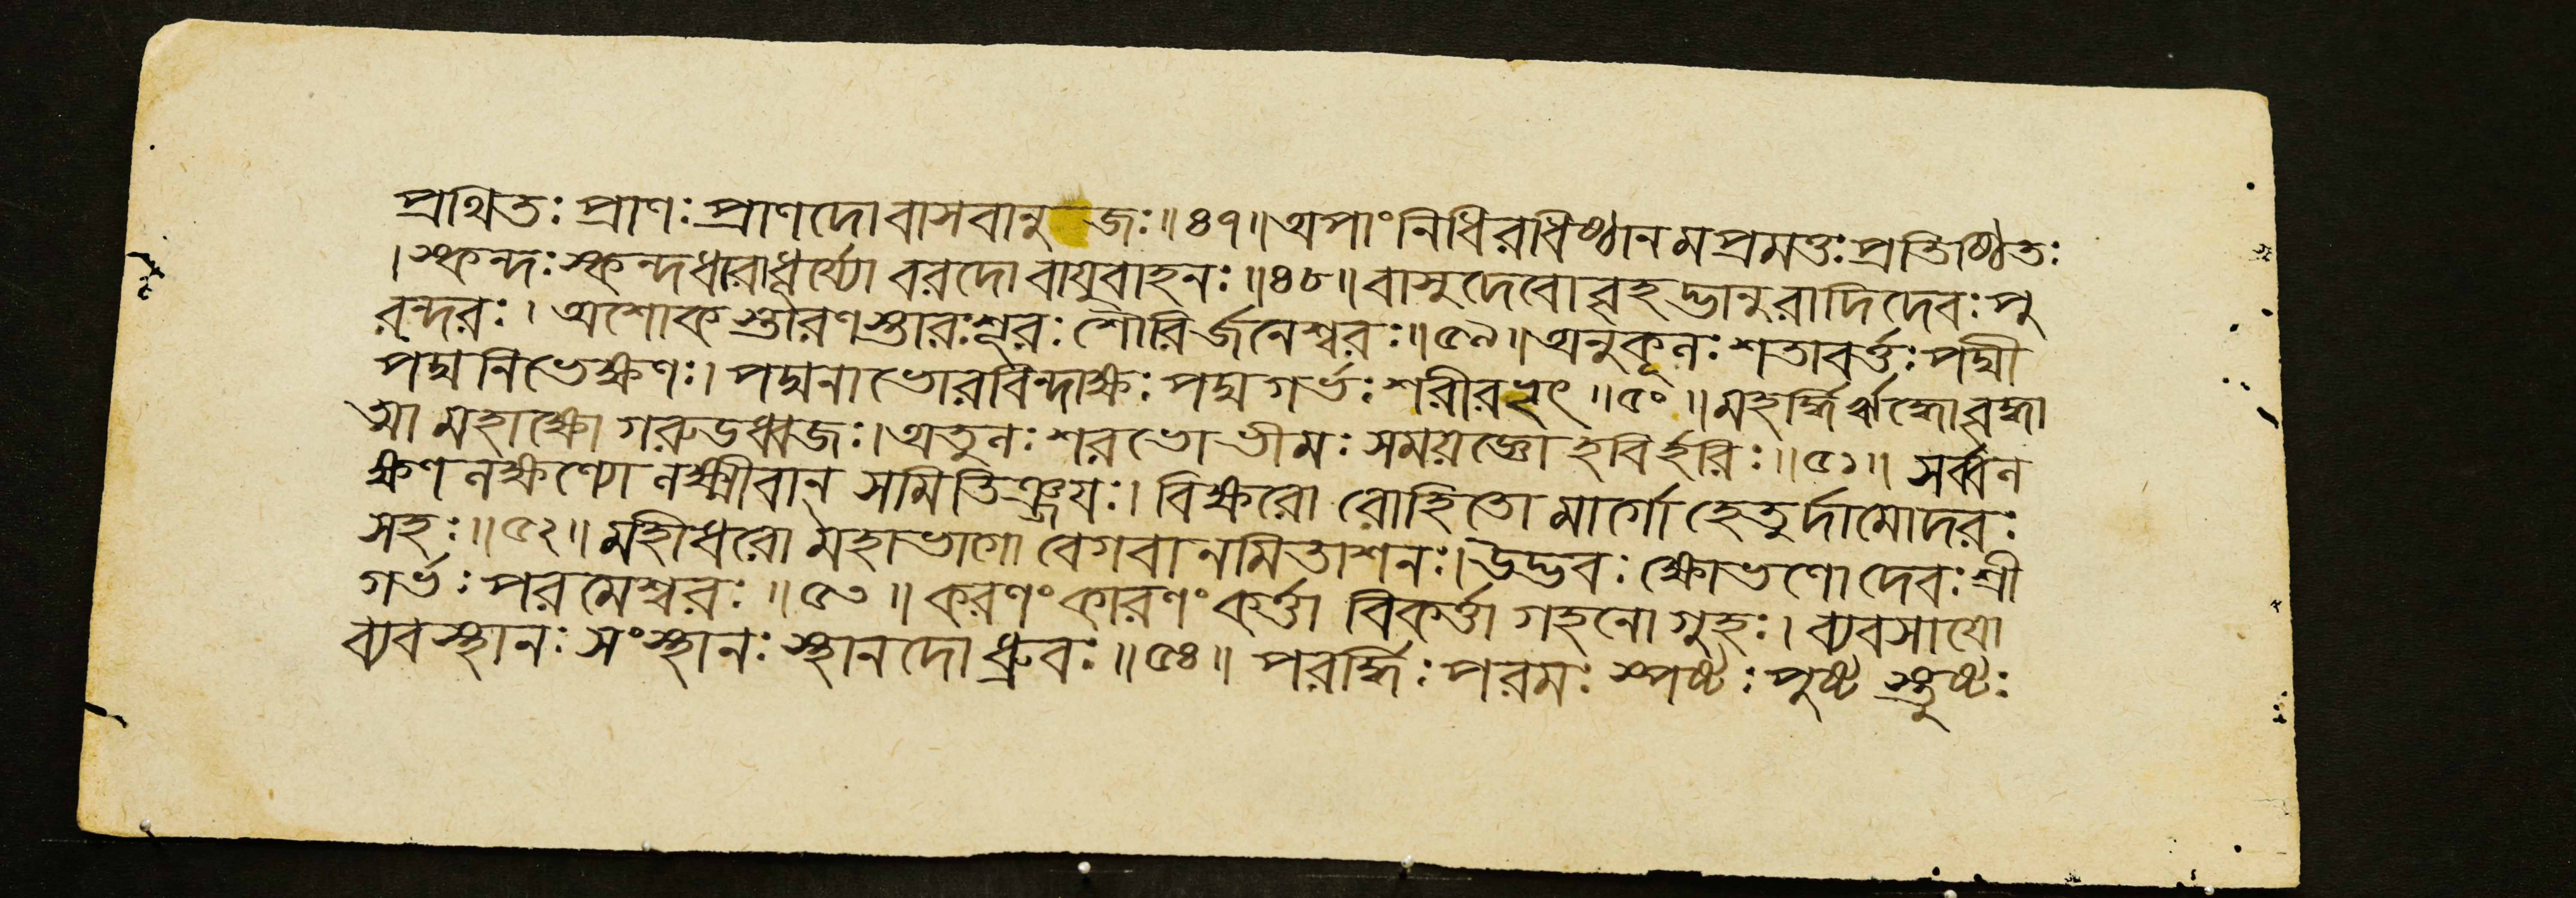 প্রথিতঃ প্রাণঃ প্রাণদো বাসবানুজঃ॥৪৭॥ অপাংনিধিরধিষ্ঠানমপ্রমত্তঃ প্রতিষ্ঠিতঃ
।স্কন্দঃ স্কন্দধারাধুর্য্যো বরদো বায়ুবাহনঃ॥৪৮॥ বাসুদেবো বৃহদ্ভানুরাদিদেবঃ পু
রন্দরঃ। অশোকস্তারণস্তারঃ শূরঃ শৌরির্জনেশ্বরঃ॥৫৯॥ অনুকূলঃ শতাবর্ত্তঃ পদ্মী
পদ্মনিভেক্ষণঃ। পদ্মনাভোরবিন্দাক্ষঃ পদ্মগর্ভঃ শরীরভৃৎ॥৫০॥ মহর্দ্ধির্ঋদ্ধো বৃদ্ধা
আ মহাক্ষো গরুডধ্বজঃ। অতুলঃ শরভো ভীমঃ সময়জ্ঞো হবির্হরিঃ॥৫১॥ সর্ব্বল
ক্ষণলক্ষণ্যো লক্ষ্মীবান্ সমিতিঞ্জয়ঃ। বিক্ষরো রোহিতো মার্গো হেতুর্দামোদরঃ
সহঃ॥৫২॥ মহীধরো মহাভাগো বেগবানমিতাশনঃ। উদ্ভবঃ ক্ষোভণো দেবঃ শ্রী
গর্ভঃ পরমেশ্বরঃ॥৫৩॥ করণং কারণং কর্ত্তা বিকর্ত্তা গহনো গুহঃ। ব্যবসায়ো
ব্যবস্থানঃ সংস্থানঃ স্থানদো ধ্রুবঃ॥৫৪॥ পরর্দ্ধিঃ পরমঃ স্পষ্টঃ পুষ্ট স্তুষ্টঃ